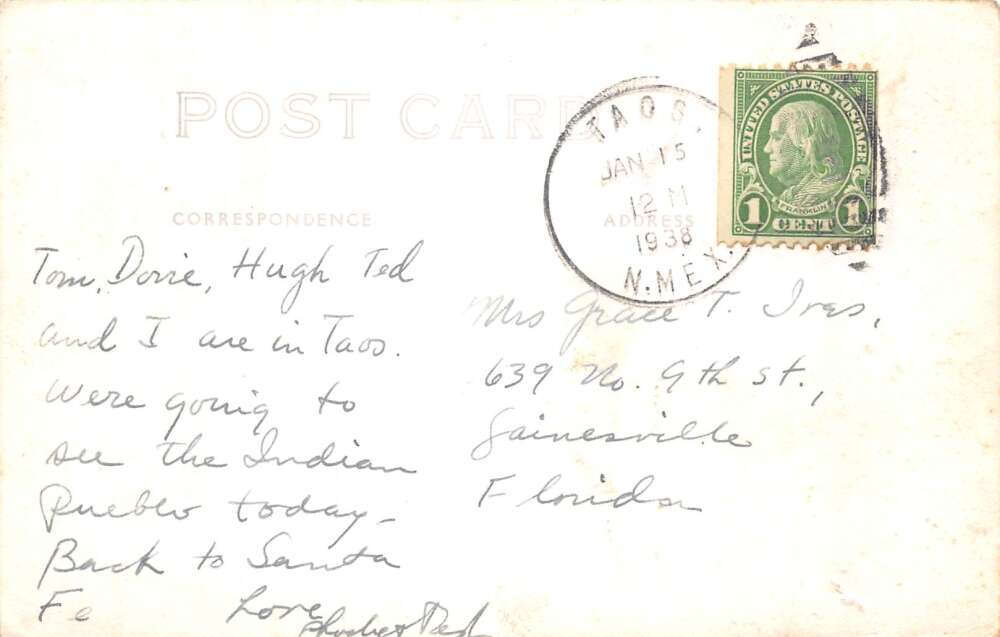 POST CARD
CORRESPONDENCE
ADDRESS
TAOS.
JAN 15
12 M
1938
N. MEX.
UNITED STATES POSTAGE
FRANKLIN
1 CENT 1
Tom, Dorie, Hugh Ted
and I are in Taos.
Were going to
see the Indian
Pueblo today –
Back to Santa
Fe Love
Ted
Mrs Grace T. Ives,
639 No. 9th St.,
Gainesville
Florida